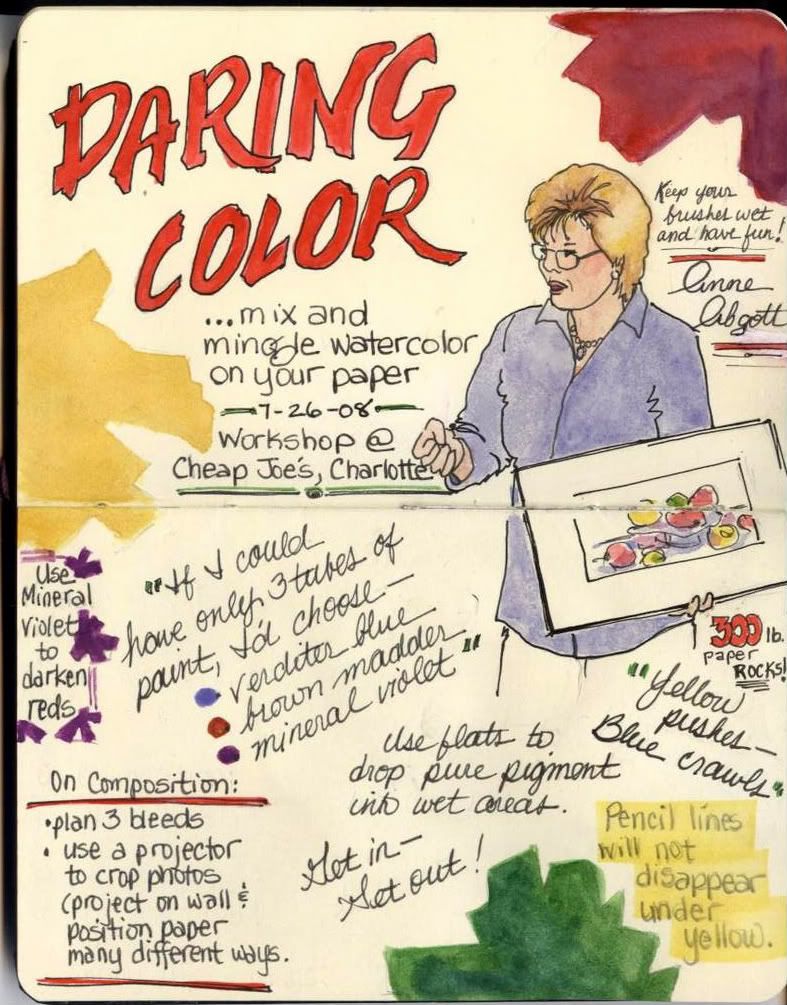 DARING
COLOR
...mix and
mingle watercolor
on your paper
7-26-08
Workshop @
Cheap Joe's, Charlotte
Keep your
brushes wet
and have fun!
Anne
Abgott
Use
Mineral
Violet
to
darken
reds
"If I could
have only 3 tubes of
paint, I'd choose—
verditer blue
brown madder
mineral violet"
300 lb.
paper
ROCKS!
"Yellow
pushes—
Blue crawls"
Use flats to
drop pure pigment
into wet areas.
Get in—
Get out!
On Composition:
• plan 3 bleeds
• use a projector
to crop photos
(project on wall &
position paper
many different ways.
Pencil lines
will not
disappear
under
yellow.